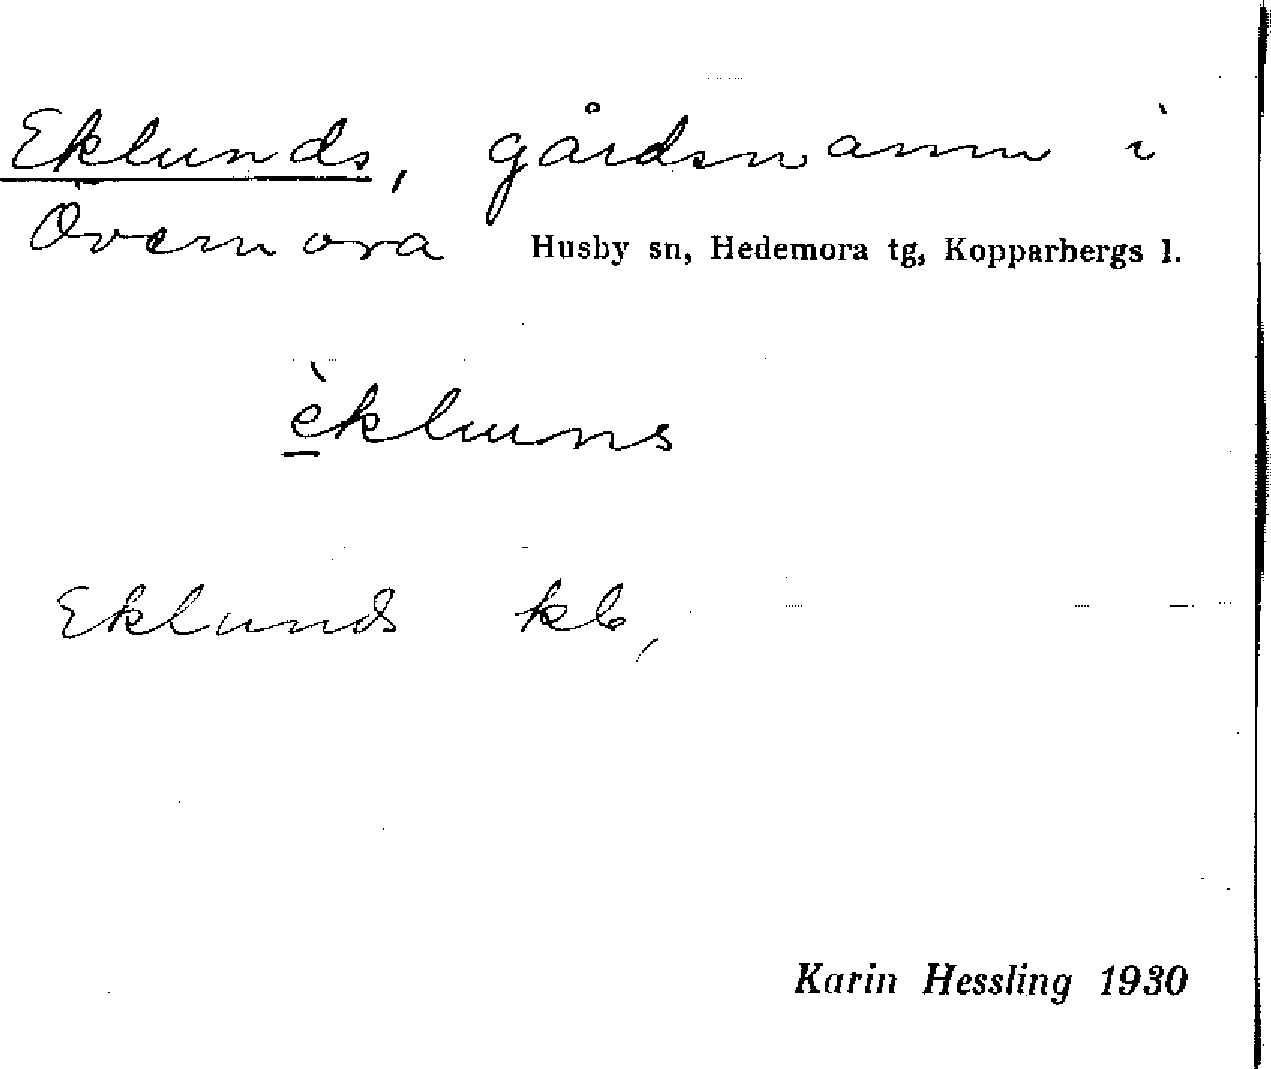 Eklunds, gårdsnamn i
Övermora Husby sn, Hedemora tg, Kopparbergs l.
èkluns
Eklunds kb,
Karin Hessling 1930